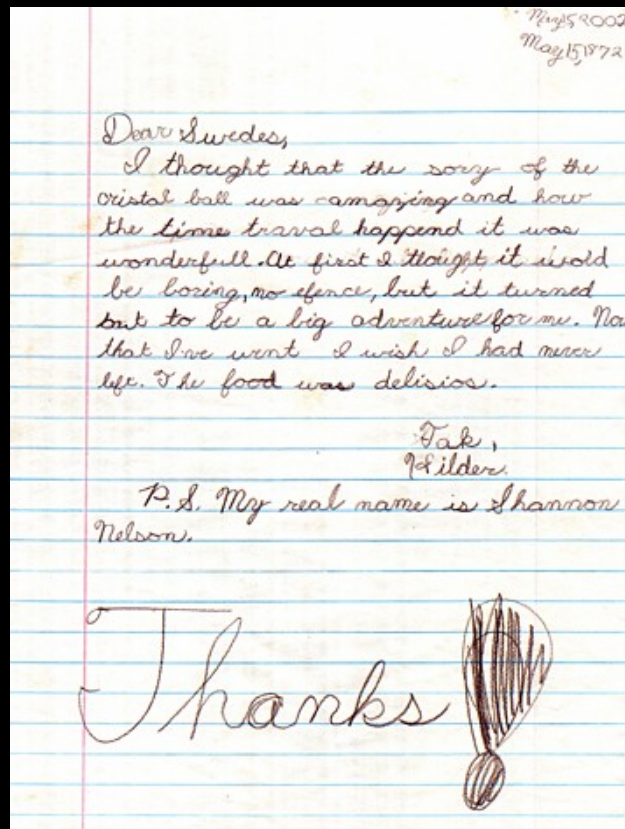 May 15, 2002
May 15, 1872
Dear Swedes,
I thought that the sory of the
cristal ball was amazing and how
the time traval happend it was
wonderfull. At first I thought it wold
be boring, no efence, but it turned
out to be a big adventure for me. Now
that I've went I wish I had never
left. The food was delisios.
Tak,
Hilder.
P.S. My real name is Shannon
Nelson.
Thanks!